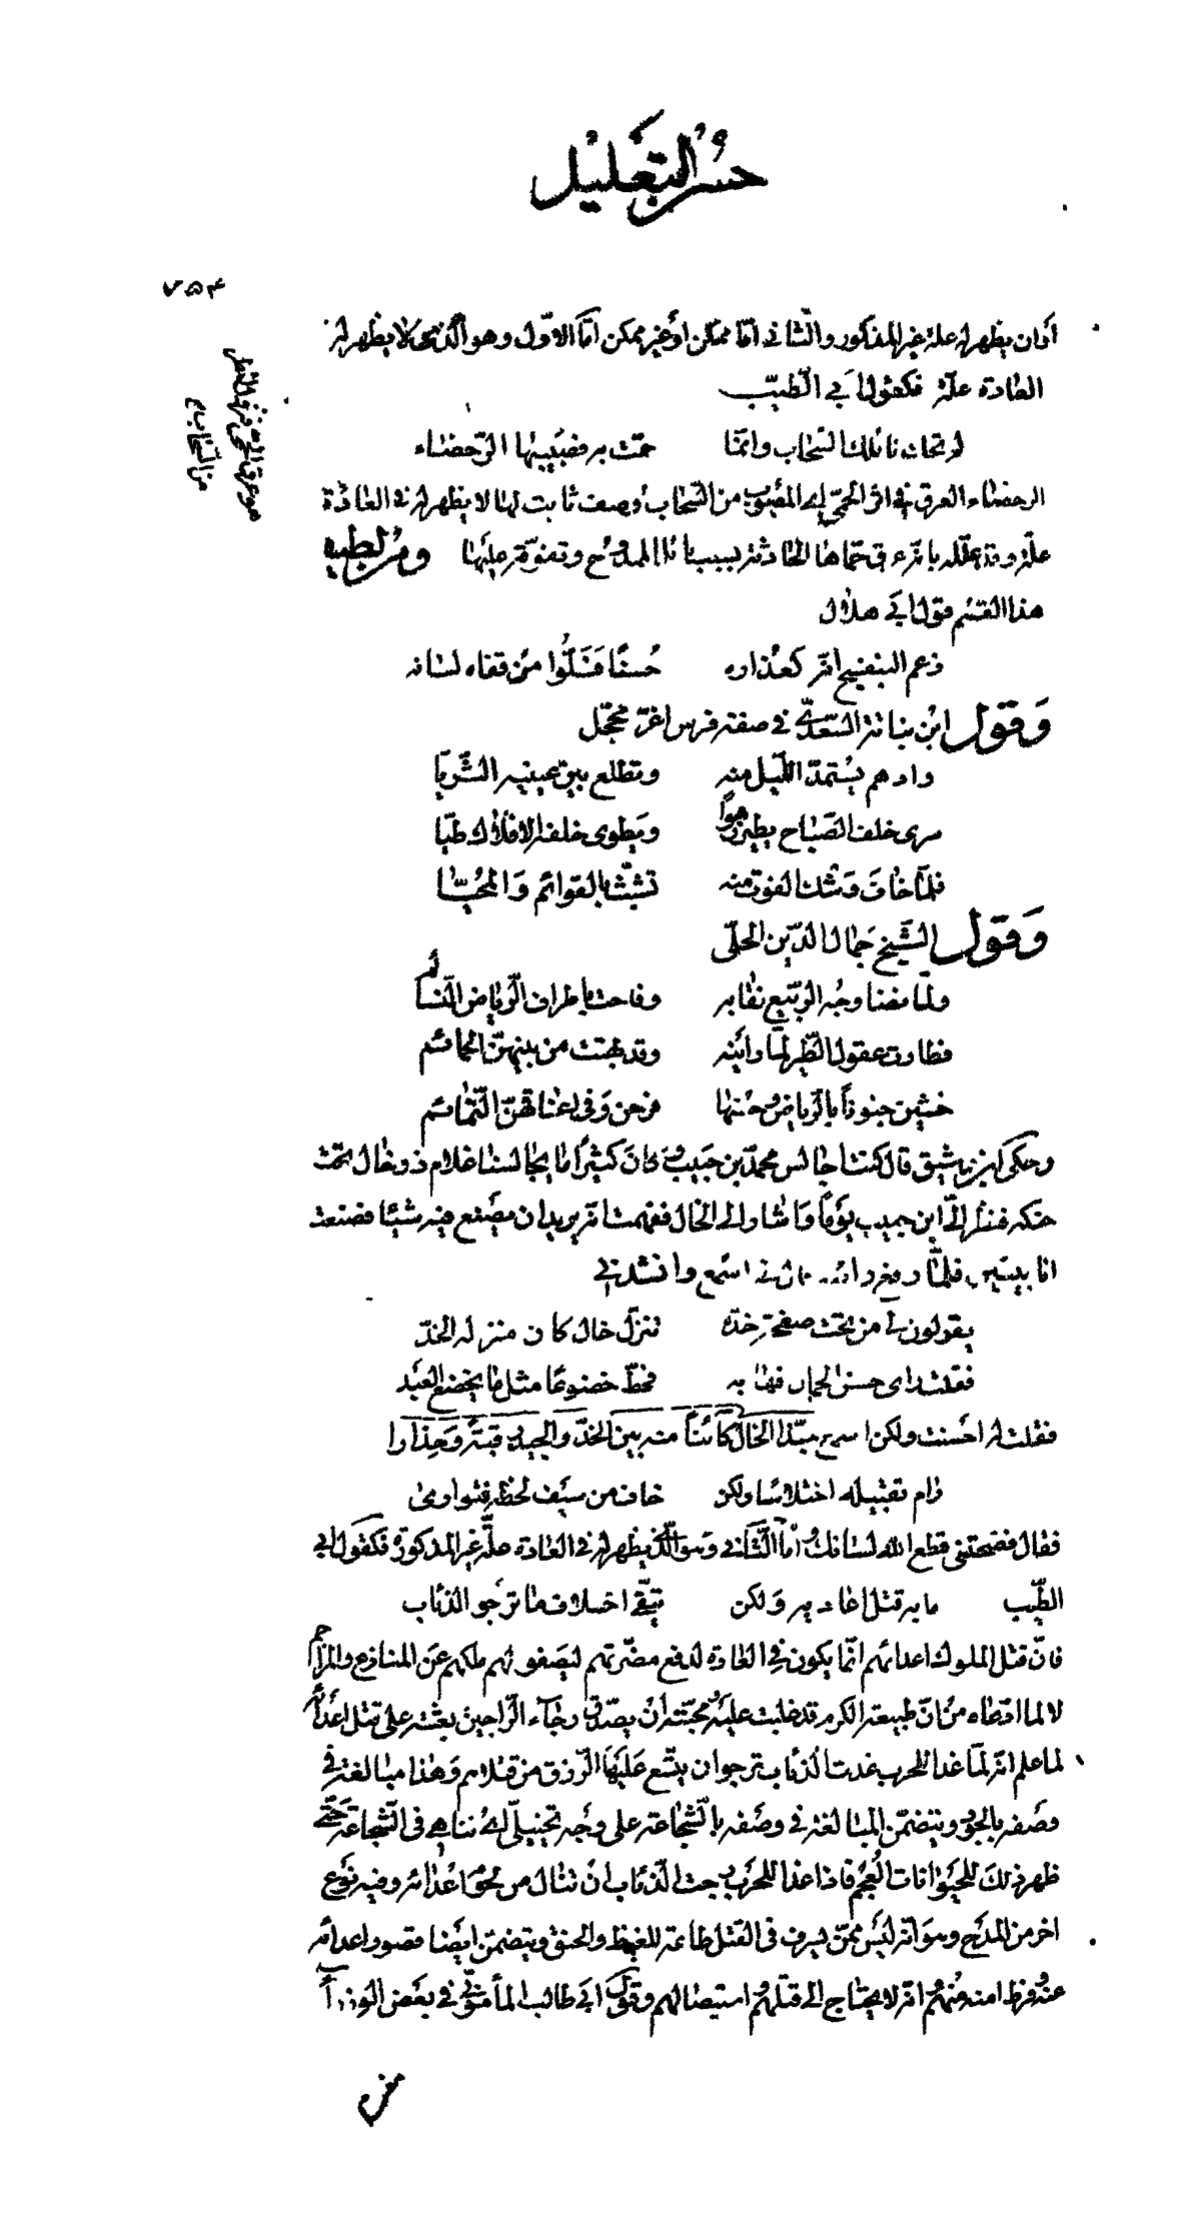 حسن التعليل
٧٥۴
أو ان يظهر له علة غير المذكور والثانى امّا ممكن او غير ممكن امّا الاوّل وهو الذى لا يظهر له فى
العادة علّة فكقول ابى الطيّب
لم تحك نائلك السّحاب وانّما حمّت به فصبيبها الرّحضاء
الرحضاء العرق فى اثر الحمّى اى المصبوب من السّحاب وصف ثابت لها لا يظهر له فى العادة
علّة وقد علّله بانّه عرق حمّاها الحادثة بسبب نائل الممدوح وتفوّقه عليها ومن لطيف
هذا القسم قول ابى هلال
زعم البنفسج انّه كعذاره حُسنًا فسَلّوا من قفاه لسانه
وَقول ابن نباتة السّعدىّ فى صفة فرس اغرّ محجّل
وادهم يستمدّ اللّيل منه وتطلع بين عينيه الثّريّا
سرى خلف الصّباح يطير زهوًا ويطوى خلفه الافلاك طيّا
فلمّا خاف وشك الفوت منه تشبّث بالقوائم والمحيّا
وَقول الشّيخ جمال الدّين الحلّى
ولمّا نضا وجه الرّبيع نقابه وفاحت باطراف الرّياض النّسائم
فطارت عقول الطّير لمّا رأينه وقد بهتت من بينهنّ الحمائم
خشين جنونًا بالرّياض وحسنها فرحن وفى اعناقهنّ التّمائم
وحكى ابن رشيق قال كنت اجالس محمّد بن حبيب وكان كثيرًا ما يجالسنا غلام ذو خال تحت
حنكه فنظر الىّ ابن حبيب يومًا واشار الى الخال ففهمت انّه يريد ان يصنع فيه شيئًا فصنعت
انا بيتين فلمّا رفع راسه قال لى اسمع وانشدنى
يقولون لى من تحت صفحة خدّه تنزّل خال كان منزله الخدّ
فقلت راى حسن الجمال فهابه فحطّ خضوعًا مثل ما يخضع العبد
فقلت له احسنت ولكن اسمع حبّذا الخال كائنًا منه بين الخدّ والجيد رقبة وحذارا
رام تقبيله اختلاسًا ولكن خاف من سيف لحظه فتوارى
فقال فضحتنى قطع الله لسانك وامّا الثّانى وهو الّذى يظهر له فى العادة علّة غير المذكورة فكقول ابى
الطّيّب ما به قتل اعاديه ولكن يتّقى اخلاف ما ترجو الذئاب
فانّ قتل الملوك اعدائهم انّما يكون فى العادة لدفع مضرّتهم ليصفو لهم ملكهم عن المنازع والمزاحم
لا لما ادّعاه من انّ طبيعة الكرم قد غلبت عليه ومحبّته ان يصدّق رجاء الرّاجين بعثته على قتل اعدائه
لما علم انّه لمّا غدا للحرب غدت الذئاب ترجو ان يتّسع عليها الرّزق من قتلاهم وهذا مبالغة فى
وصفه بالجود ويتضمّن المبالغة فى وصفه بالشّجاعة على وجه تخييلىّ اى تناهى فى الشّجاعة حتّى
ظهر ذلك للحيوانات العجم فاذا غدا للحرب رجت الذئاب ان تنال من لحوم اعدائه وفيه نوع
اخر من المدح وهو انّه ليس ممّن يسرف فى القتل طاعة للغيظ والحنق ويتضمّن ايضا قصور اعدائه
عنه وفرط امنه منهم وانّه لا يحتاج الى قتلهم واستيصالهم وقول ابى طالب المأمونىّ فى بعض الوزرآء